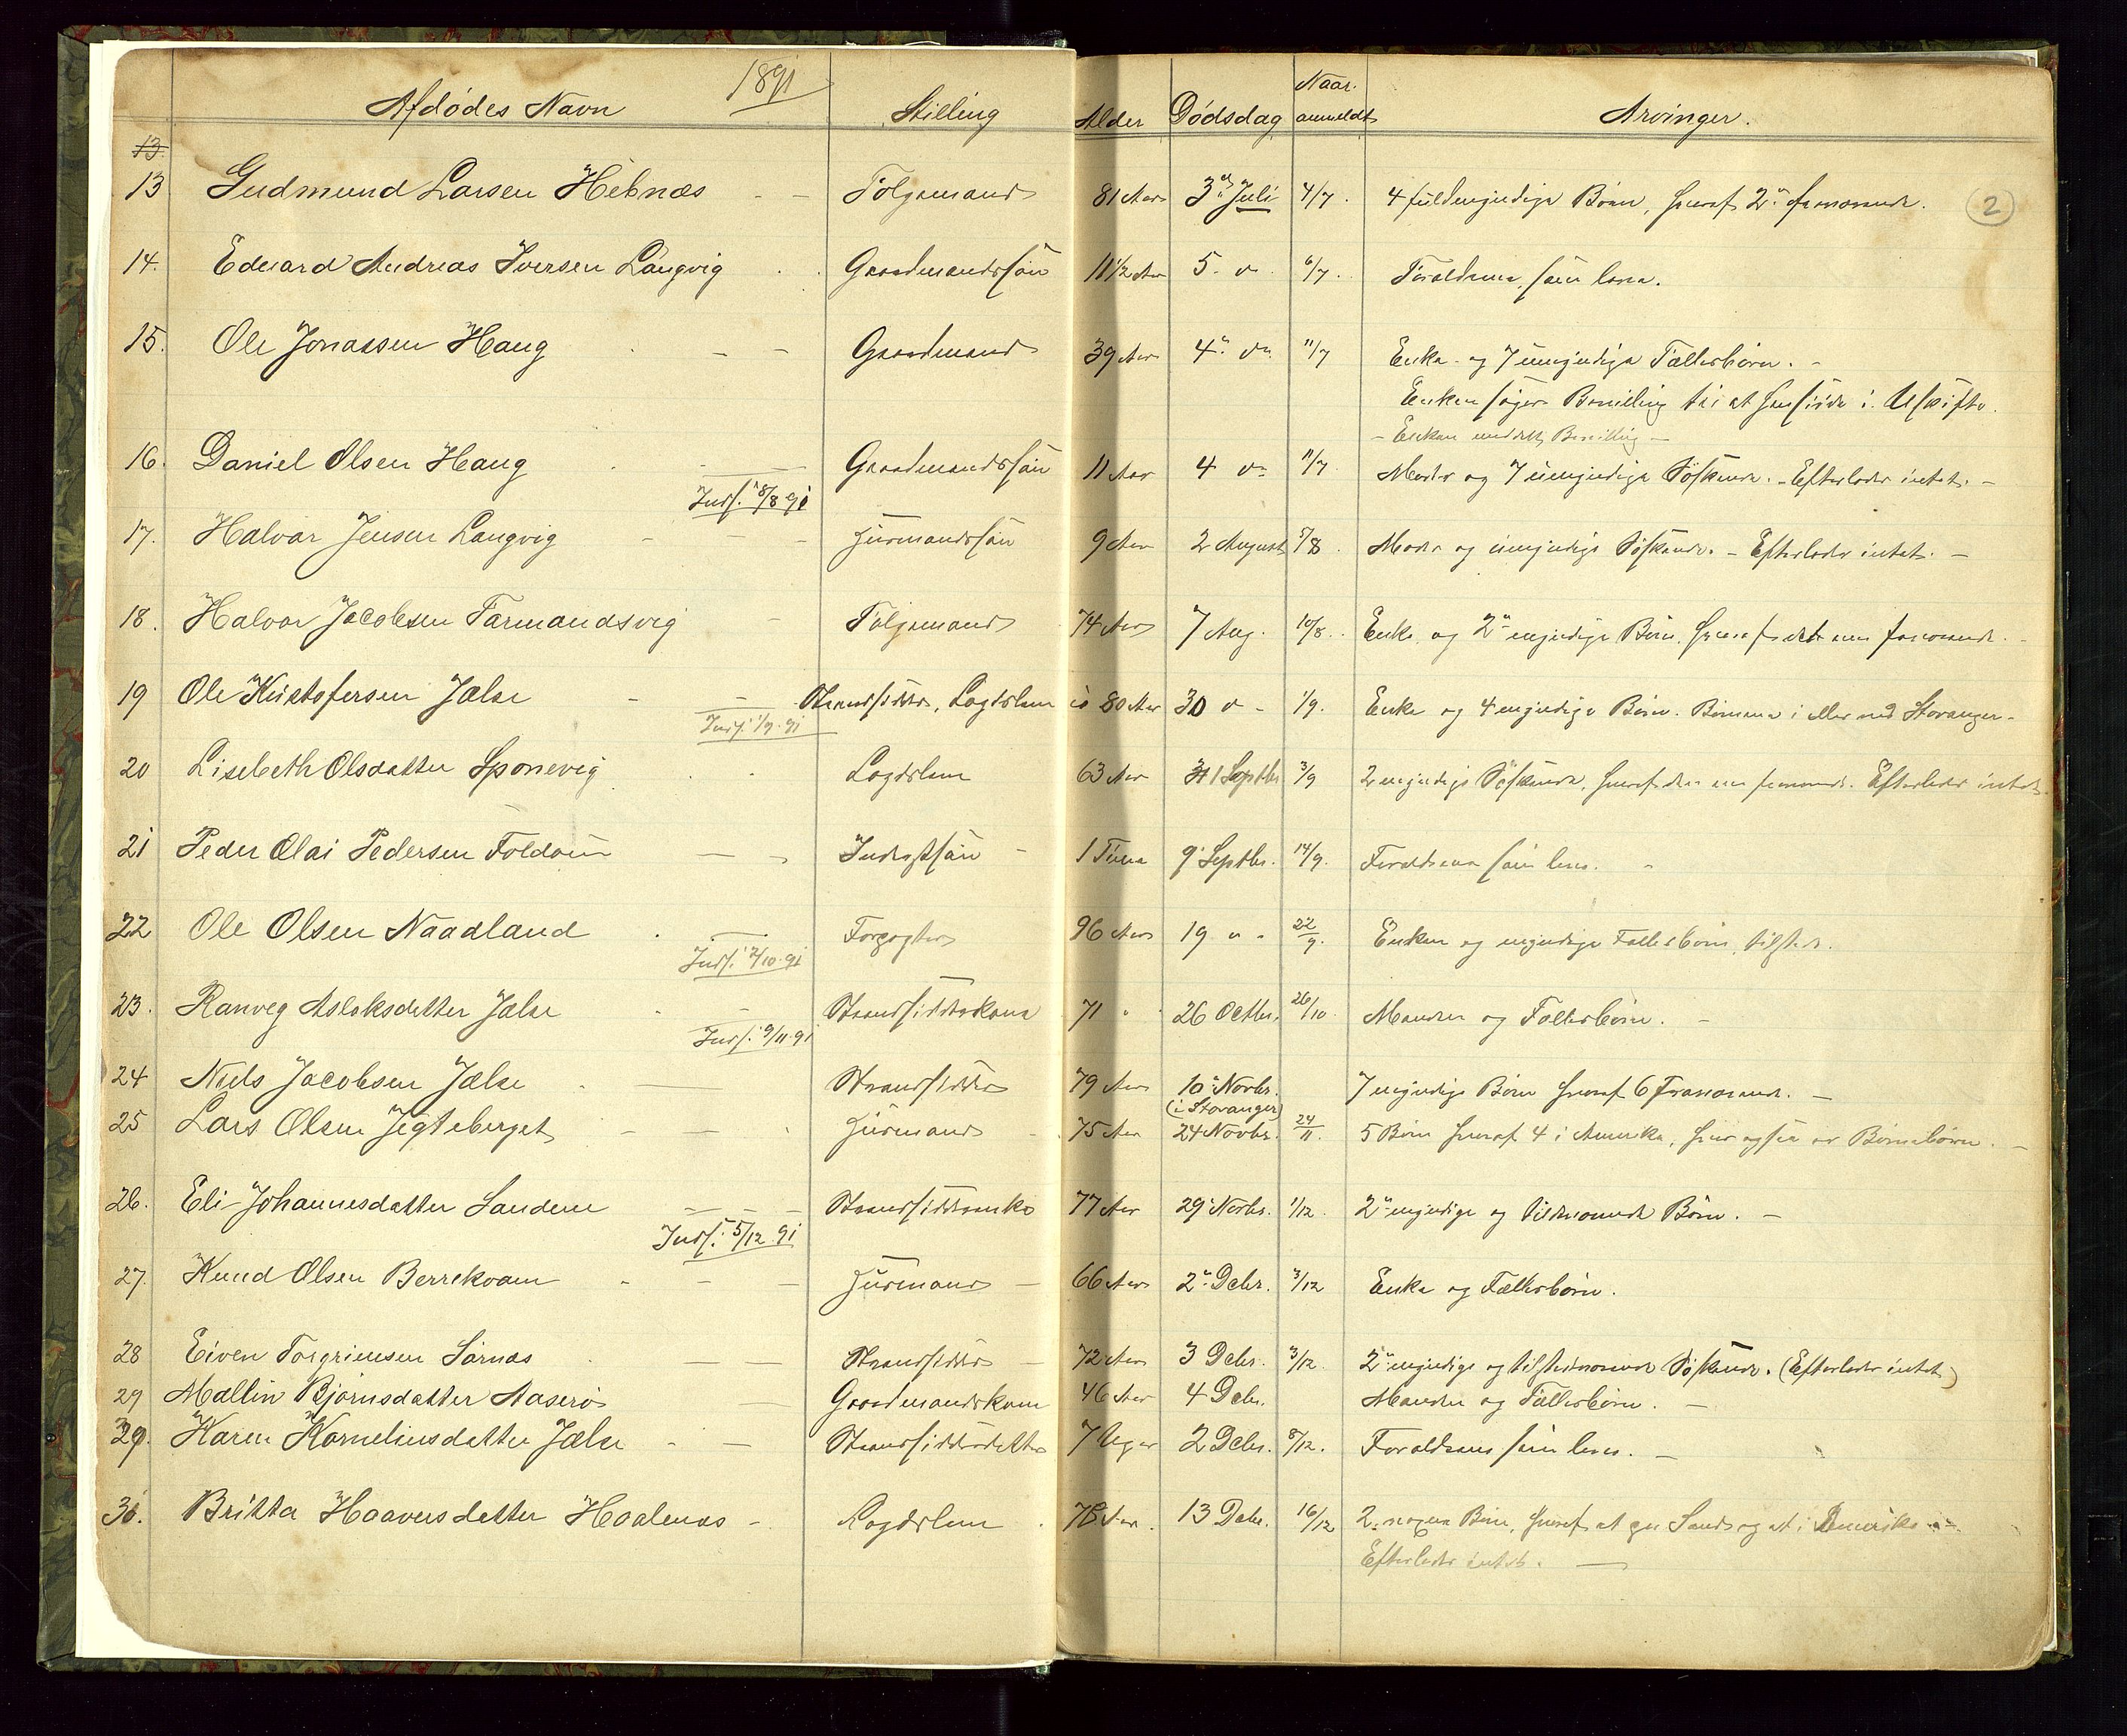 1891
Afdödes Navn Stilling Alder Dödsdag Naar anmeldt Arvinger.
13
13 Gudmund Larsen Hebnæs - - Fölgemand 81 Aar 3die Juli 4/7. 4 fuldmyndige Börn, hvoraf 2de fraværende. 2
14. Eduard Andreas Iversen Langvig Gaardmandssön 11 1/2 Aar 5. do 6/7. Forældrene, som leve.
15. Ole Jonassen Haug - - Gaardmand 39 Aar 4de do 11/7 Enke og 7 umyndige Fællesbörn. -
Enken söger Bevilling til at hensidde i Uskifte.
- Enken meddelt Bevilling -
16. Daniel Olsen Haug Gaardmandssön 11 Aar 4 do 11/7. Moder og 7 umyndige Söskende. - Efterlader intet. -
Inds. 8/8 91
17. Halvor Jensen Langvig - - - Huusmandssön 9 Aar 2 August 5/8. Moder og umyndige Söskende. - Efterlader intet. -
18. Halvor Jacobsen Farmandsvig - Fölgemand 74 Aar 7 Aug. 10/8. Enke og 2de myndige Börn, hvoraf det ene fraværende.
19 Ole Kristofersen Jælse - - Strandsidder, Lægdslem 80 Aar 30 do - 1/9. Enke og 4 myndige Börn. Börnene i eller ved Stavanger.
Inds. 1/9. 91
20 Lisebeth Olsdatter Sponevig Lægdslem 63 Aar 1 Septbr 3/9 2 myndige Söskende, hvoraf den ene fraværende. Efterlader intet.
21 Peder Olai Pedersen Foldöen - - Inderstsön - 1 Time 9. Septbr. 14/9. Forældrene som leve. -
22 Ole Olsen Naadland Forsögter 96 Aar 19 " - 22/9. Enken og myndige Fællesbörn, tilstede.
Inds. 2/10. 91
23. Ranveg Aslaksdatter Jælse - Strandsidderkone 71 " 26 Octbr. 26/10. Manden og Fællesbörn. -
Inds. 9/11. 91
24 Niels Jacobsen Jælse Strandsidder 79 Aar 10. Novbr. (i Stavanger) 7 myndige Börn hvoraf 6 Fraværende. -
25 Lars Olsen Jegteberget - - Huusmand - 75 Aar 24 Novbr. 24/11. 5 Börn hvoraf 4 i Amerika, hvor ogsaa er Börnebörn. -
26. Eli Johannesdatter Sandem - - - Strandsidderenke 77 Aar 29. Novbr. 1/12. 2de myndige og tilstedeværende Börn. -
Inds. 5/12. 91
27. Knud Olsen Berrekvam - - - Huusmand - 66 Aar 2den Debr. 3/12 Enke og Fællesbörn.
28 Eiven Torgriemsen Sörnæs - - Strandsidder - 72 Aar 3 Debr. 3/12. 2de myndige og tilstedeværende Söskende. (Efterlader intet)
29 Mallin Björnsdatter Aaserö - Gaardmandskone 46 Aar 4 Debr. Manden og Fællesbörn. -
29. Karen Korneliusdatter Jælse - - Strandsidderdatter 7 Uger 2 Debr. 8/12. Forældrene som leve. -
30. Britta Haavers datter Hoalenæs - Lægdslem 78 Aar. 13 Debr. 16/12 2 Börn, hvoraf et paa Sand og et i Amerika. -
Efterlader intet. -